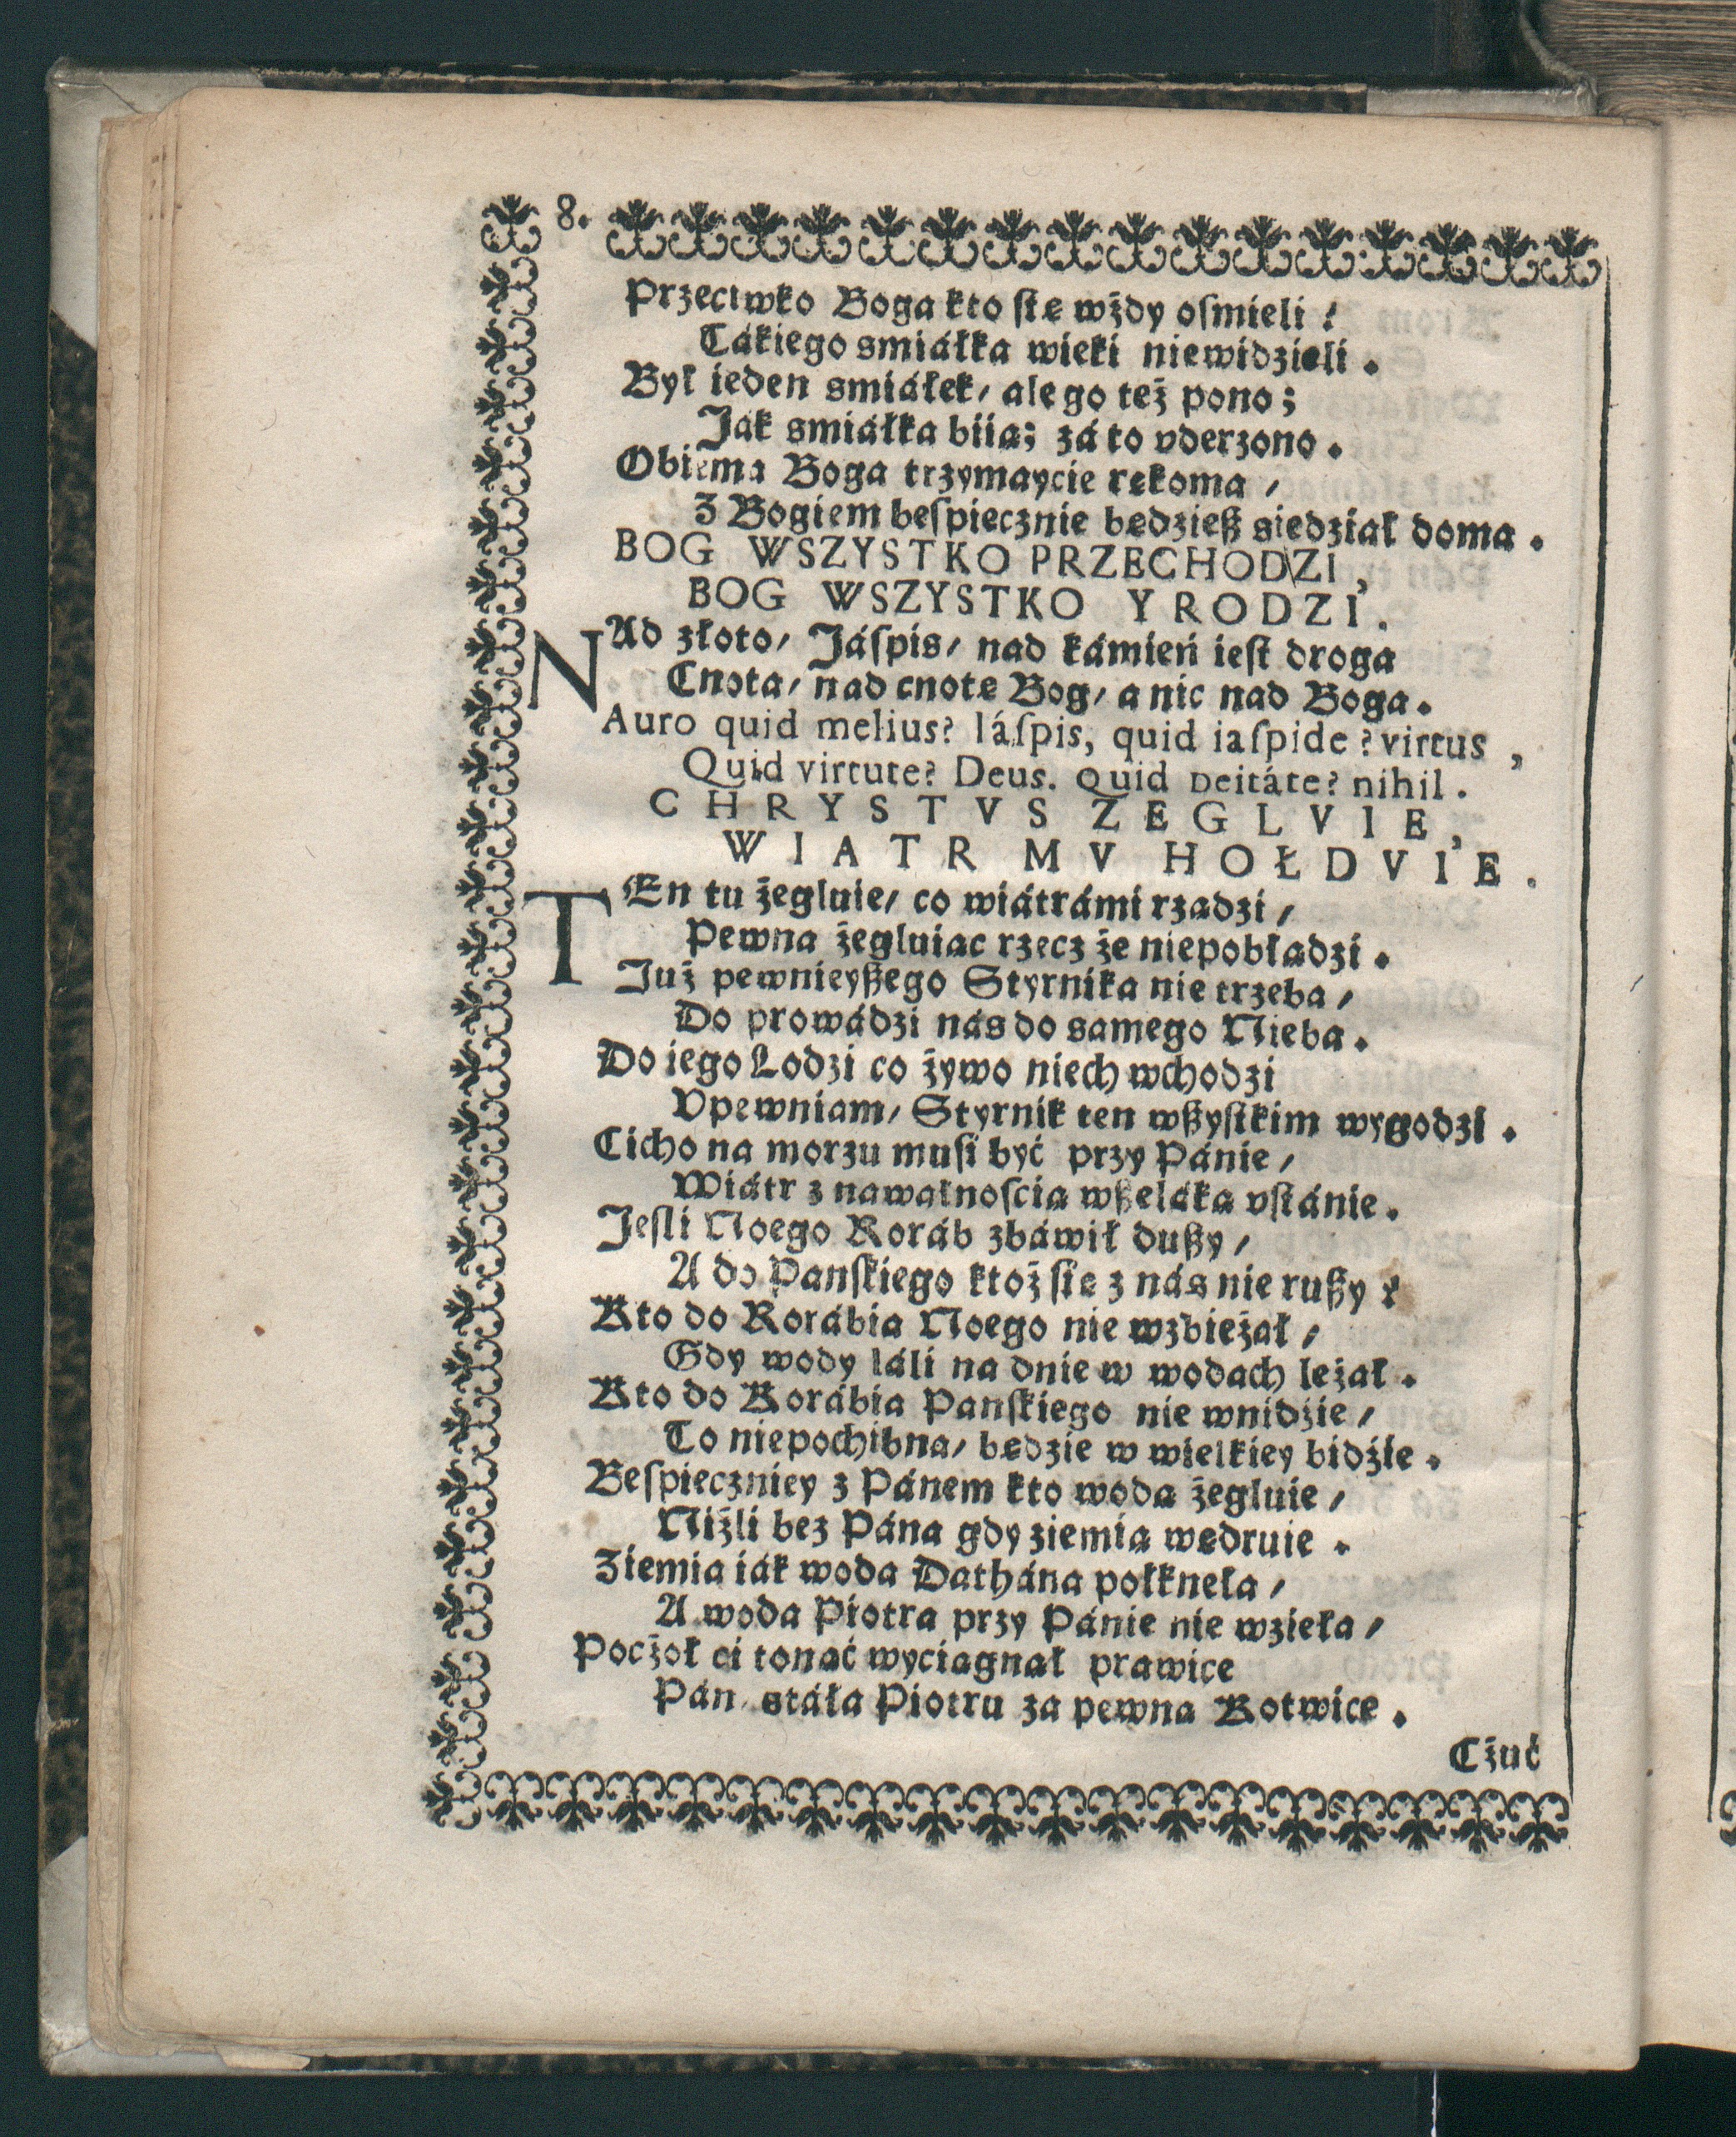 8.
Przeciwko Boga kto się wżdy osmieli?
Tákiego smiáłka wieki niewidzieli.
Był ieden smiáłek, ale go też pono;
Ják smiáłka biią; zá to vderzono.
Obiema Boga trzymaycie rękoma,
Z Bogiem bespiecznie będzieß siedział doma.
BOG WSZYSTKO PRZECHODZI,
BOG WSZYSTKO Y RODZI.
NAd złoto, Jáspis, nad kámień iest droga
Cnota, nad cnotę Bog, a nic nad Boga.
Auro quid melius? Iáſpis, quid iaſpide? virtus,
Quid virtute? Deus. Quid Deitáte? nihil.
CHRYSTVS ZEGLVIE,
WIATR MV HOŁDVIE.
TEn tu żegluie, co wiátrámi rządzi,
Pewna żegluiąc rzecz że niepobłądzi.
Już pewnieyßego Styrnika nie trzeba,
Do prowádzi nás do samego Nieba.
Do iego Lodzi co żywo niech wchodzi
Vpewniam, Styrnik ten wßystkim wygodzi.
Cicho na morzu musi być przy Pánie,
Wiátr z nawałnoscią wßeláką vstánie.
Jesli Noego Koráb zbáwił dußy,
A do Panskiego ktoż się z nás nie rußy?
Kto do Korábia Noego nie wzbieżał,
Gdy wody láli na dnie w wodach leżał.
Kto do Korábia Panskiego nie wnidźie,
To niepochibna, będzie w wielkiey bidźie.
Bespieczniey z Pánem kto wodą żegluie,
Niżli bez Pána gdy ziemią wędruie.
Ziemia iák woda Dathána połknęła,
A woda Piotra przy Pánie nie wzięła,
Począł ci tonąć wyciągnął prawicę
Pán, stáła Piotru za pewną Kotwicę.
Cżuć